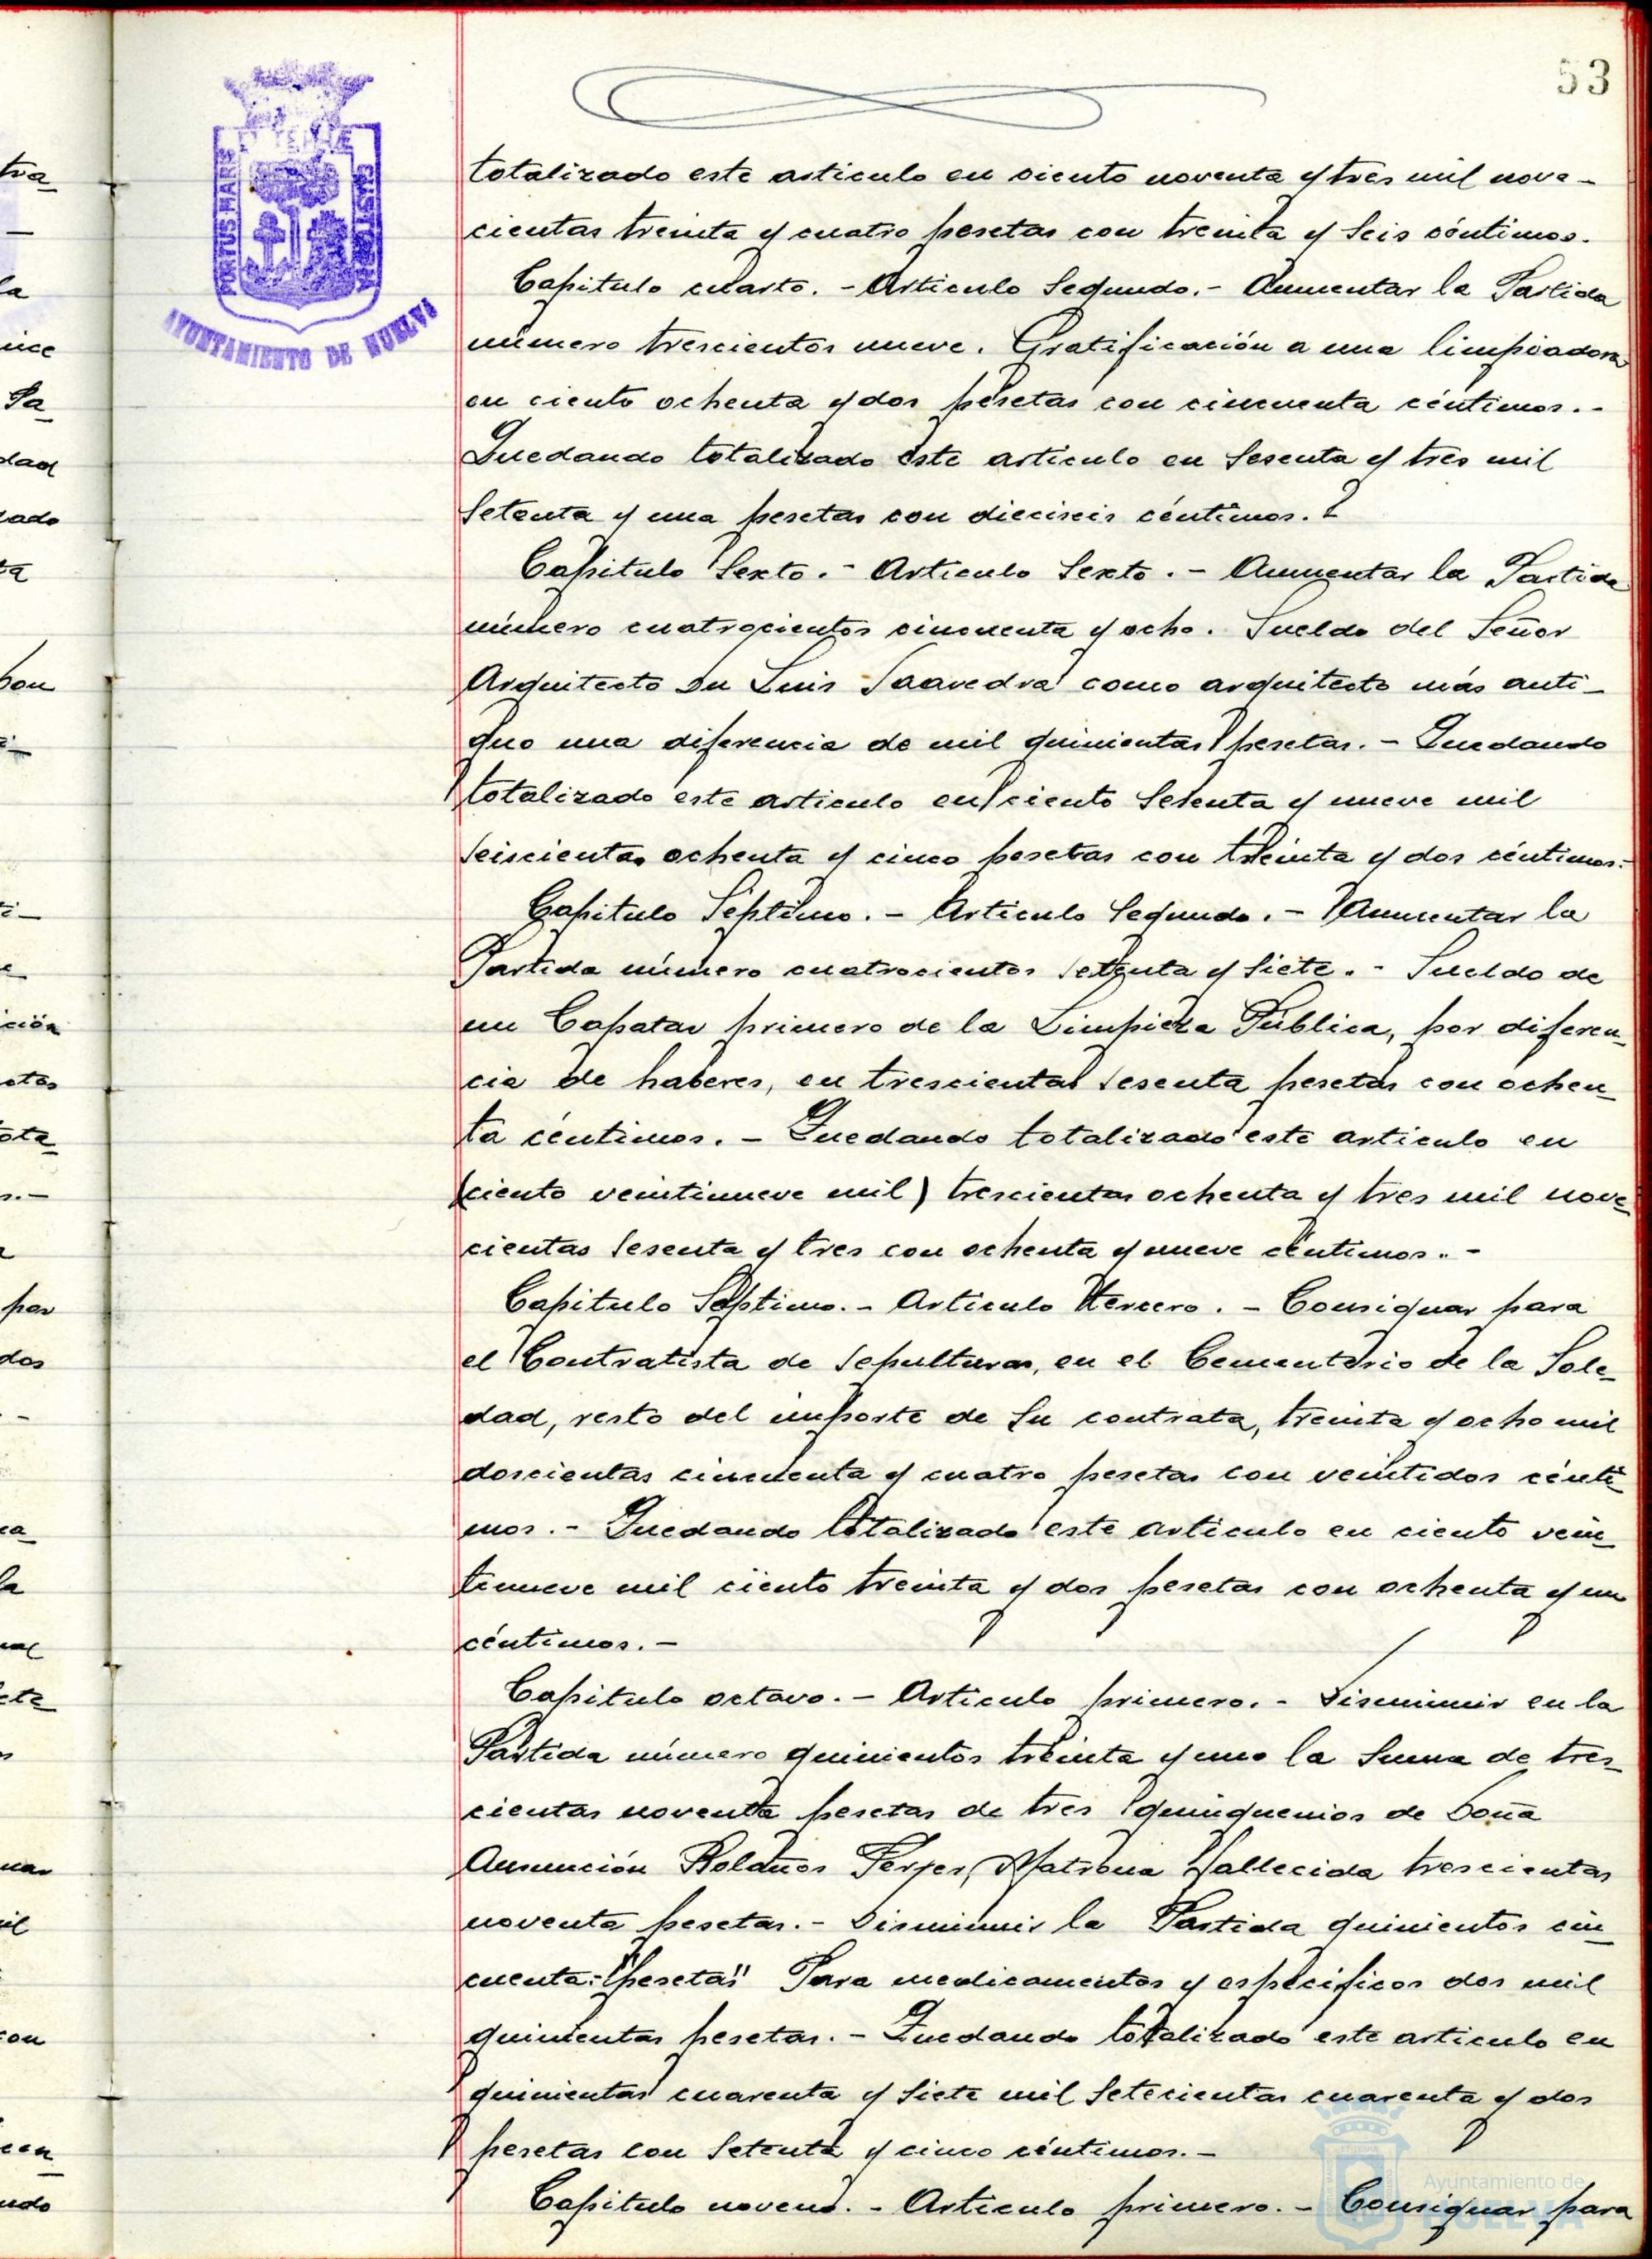 53
PORTUS MARIS ET TERRAE CUSTODIA
AYUNTAMIENTO DE HUELVA
totalizado este articulo en ciento noventa y tres mil nove-
cientas treinta y cuatro pesetas con treinta y seis céntimos.
Capitulo cuarto. - Articulo Segundo. - Aumentar la Partida
número trescientos nueve. Gratificación a una limpiadora
en ciento ochenta y dos pesetas con cincuenta céntimos. -
Quedando totalizado este articulo en sesenta y tres mil
setenta y una pesetas con dieciseis céntimos.
Capitulo Sexto. - Articulo Sexto. - Aumentar la Partida
número cuatrocientos cincuenta y ocho. Sueldo del Señor
Arquitecto Dn Luis Saavedra como arquitecto más anti-
guo una diferencia de mil quinientas pesetas. - Quedando
totalizado este articulo en ciento setenta y nueve mil
seiscientas ochenta y cinco pesetas con treinta y dos céntimos. -
Capitulo Séptimo. - Articulo Segundo. - Aumentar la
Partida número cuatrocientos setenta y siete. - Sueldo de
un Capataz primero de la Limpieza Pública, por diferen-
cia de haberes, en trescientas sesenta pesetas con ochen-
ta céntimos. - Quedando totalizado este articulo en
(ciento veintinueve mil) trescientas ochenta y tres mil nove-
cientas sesenta y tres con ochenta y nueve céntimos. -
Capitulo Séptimo. - Articulo tercero. - Consignar para
el Contratista de Sepulturas, en el Cementerio de la Sole-
dad, resto del importe de su contrata, treinta y ocho mil
doscientas cincuenta y cuatro pesetas con veintidos cénti-
mos. - Quedando totalizado este articulo en ciento vein-
tinueve mil ciento treinta y dos pesetas con ochenta y un
céntimos. -
Capitulo octavo. - Articulo primero. - Disminuir en la
Partida número quinientos treinta y uno la suma de tres-
cientas noventa pesetas de tres quinquenios de Doña
Asunción Bolaños Ferrer, Matrona fallecida trescientas
noventa pesetas. - Disminuir la Partida quinientos cin-
cuenta: "pesetas" Para medicamentos y especificos dos mil
quinientas pesetas. - Quedando totalizado este articulo en
quinientas cuarenta y siete mil setecientas cuarenta y dos
pesetas con setenta y cinco céntimos. -
Capitulo noveno. - Articulo primero. - Consignar para
Ayuntamiento de
HUELVA